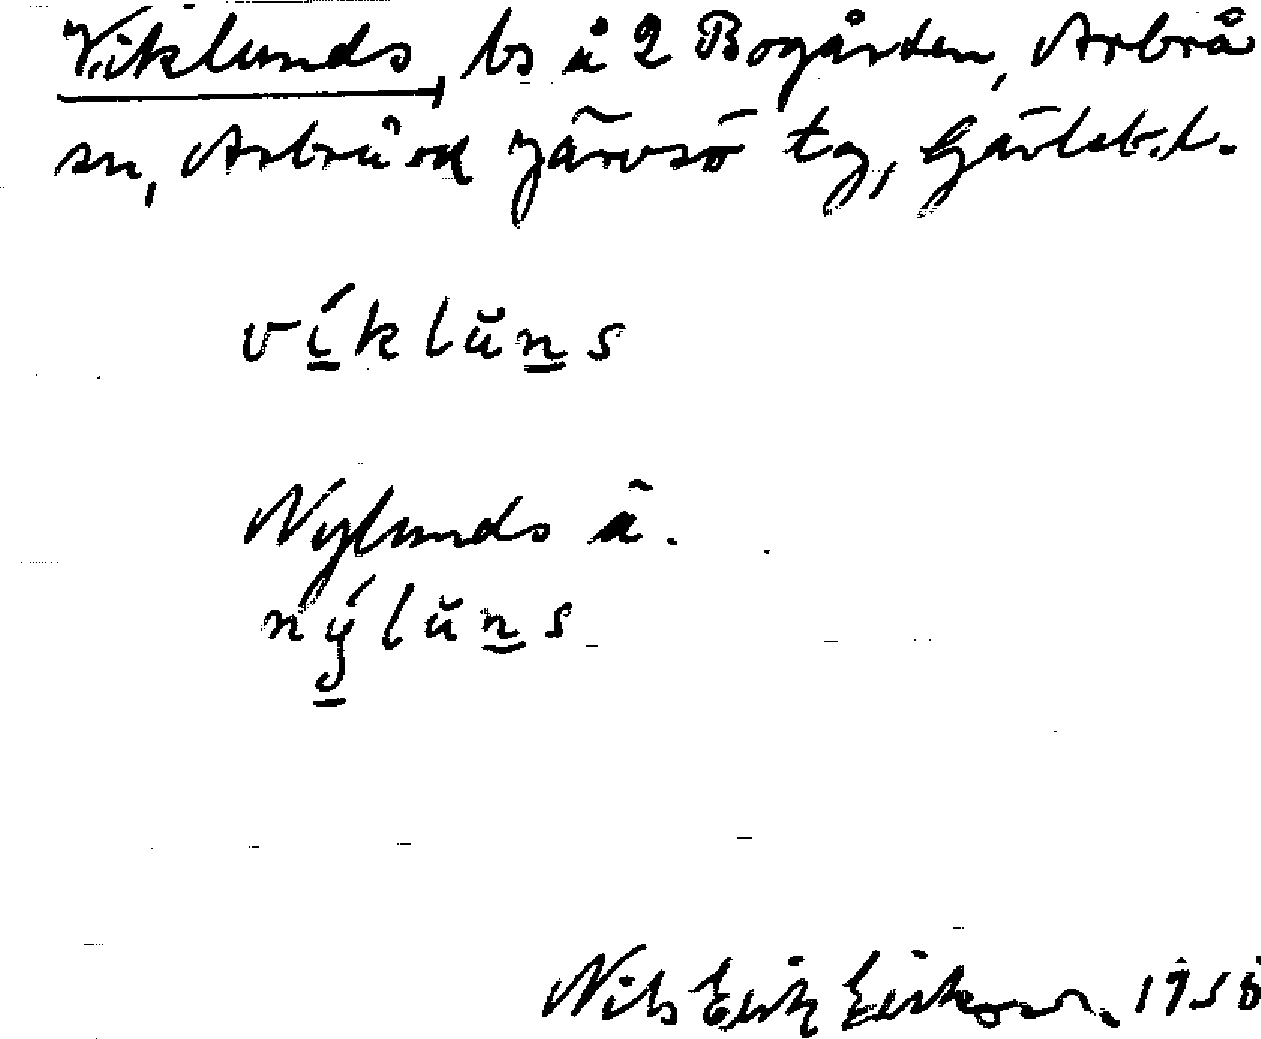 Viklunds, bs å 2 Bogården, Arbrå
sn, Arbrå ok Järvsö tg, Gävleb.l.
víklŭns
Nylunds ä.
nýlŭns
Nils Erik Eriksson, 1958